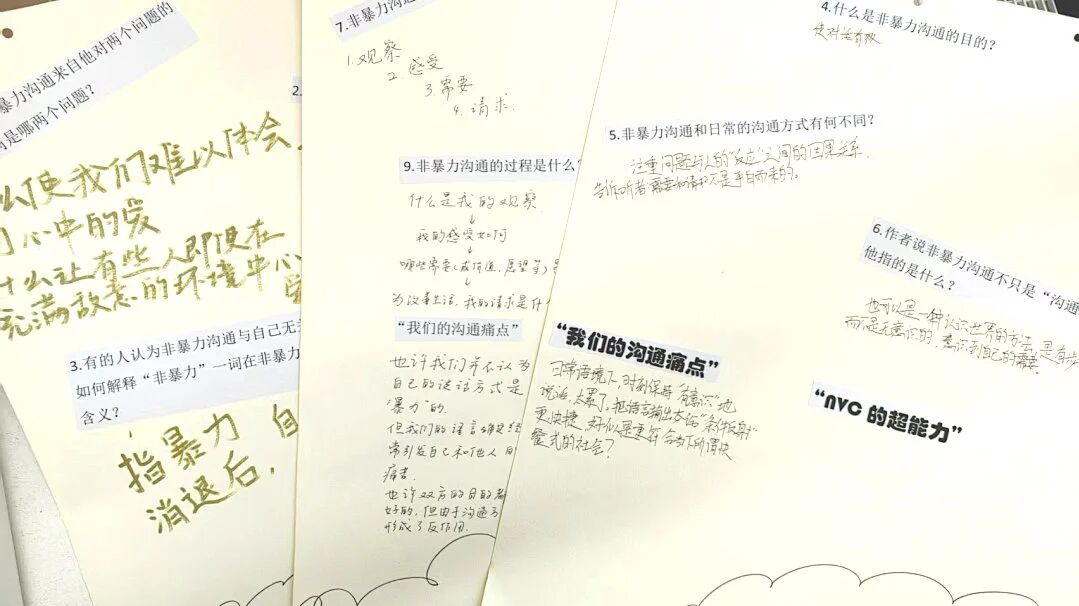 暴力沟通来自他对两个问题的
是哪两个问题?
么使我们难以体会
心中的爱
什么让有些人即便在
充满敌意的环境中心
3.有的人认为非暴力沟通与自己无
如何解释“非暴力”一词在非暴力
含义?
指暴力 自
消退后,
2.
7.非暴力沟通
1.观察
2 感受
3.需要
4.请求.
9.非暴力沟通的过程是什么?
什么是我的观察
↓
我的感受如何
↓
哪些需要(或价值、愿望等)
↓
为改善生活,我的请求是什
“我们的沟通痛点”
也许我们并不认为
自己的谈话方式是
“暴力”的.
但我们的语言确实经
常引发自己和他人的
痛苦.
也许双方的目的都
好的,但由于沟通方
形成了反作用.
4.什么是非暴力沟通的目的?
使对话有效
5.非暴力沟通和日常的沟通方式有何不同?
注重问题与人的“反应”之间的因果关系.
告诉听者需要和请求不是平白而来的。
6.作者说非暴力沟通不只是“沟通
他指的是什么?
也可以是一种认识世界的方法,是有步
而不是无意识的,意识到自己的需要.
“我们的沟通痛点”
日常语境下,时刻保持“有意识”地
说话,太累了,把语言输出变成“条件反射”
更快捷,好似是更符合当下所谓快
餐式的社会?
“NVC 的超能力”